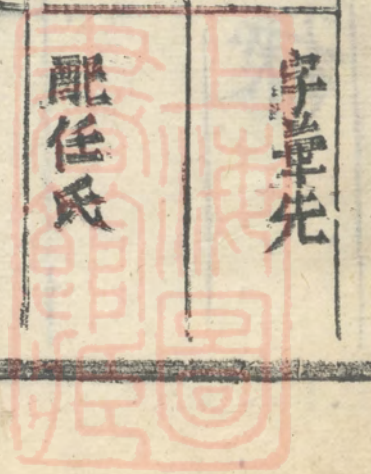 字華先
配任氏
上海圖書館藏